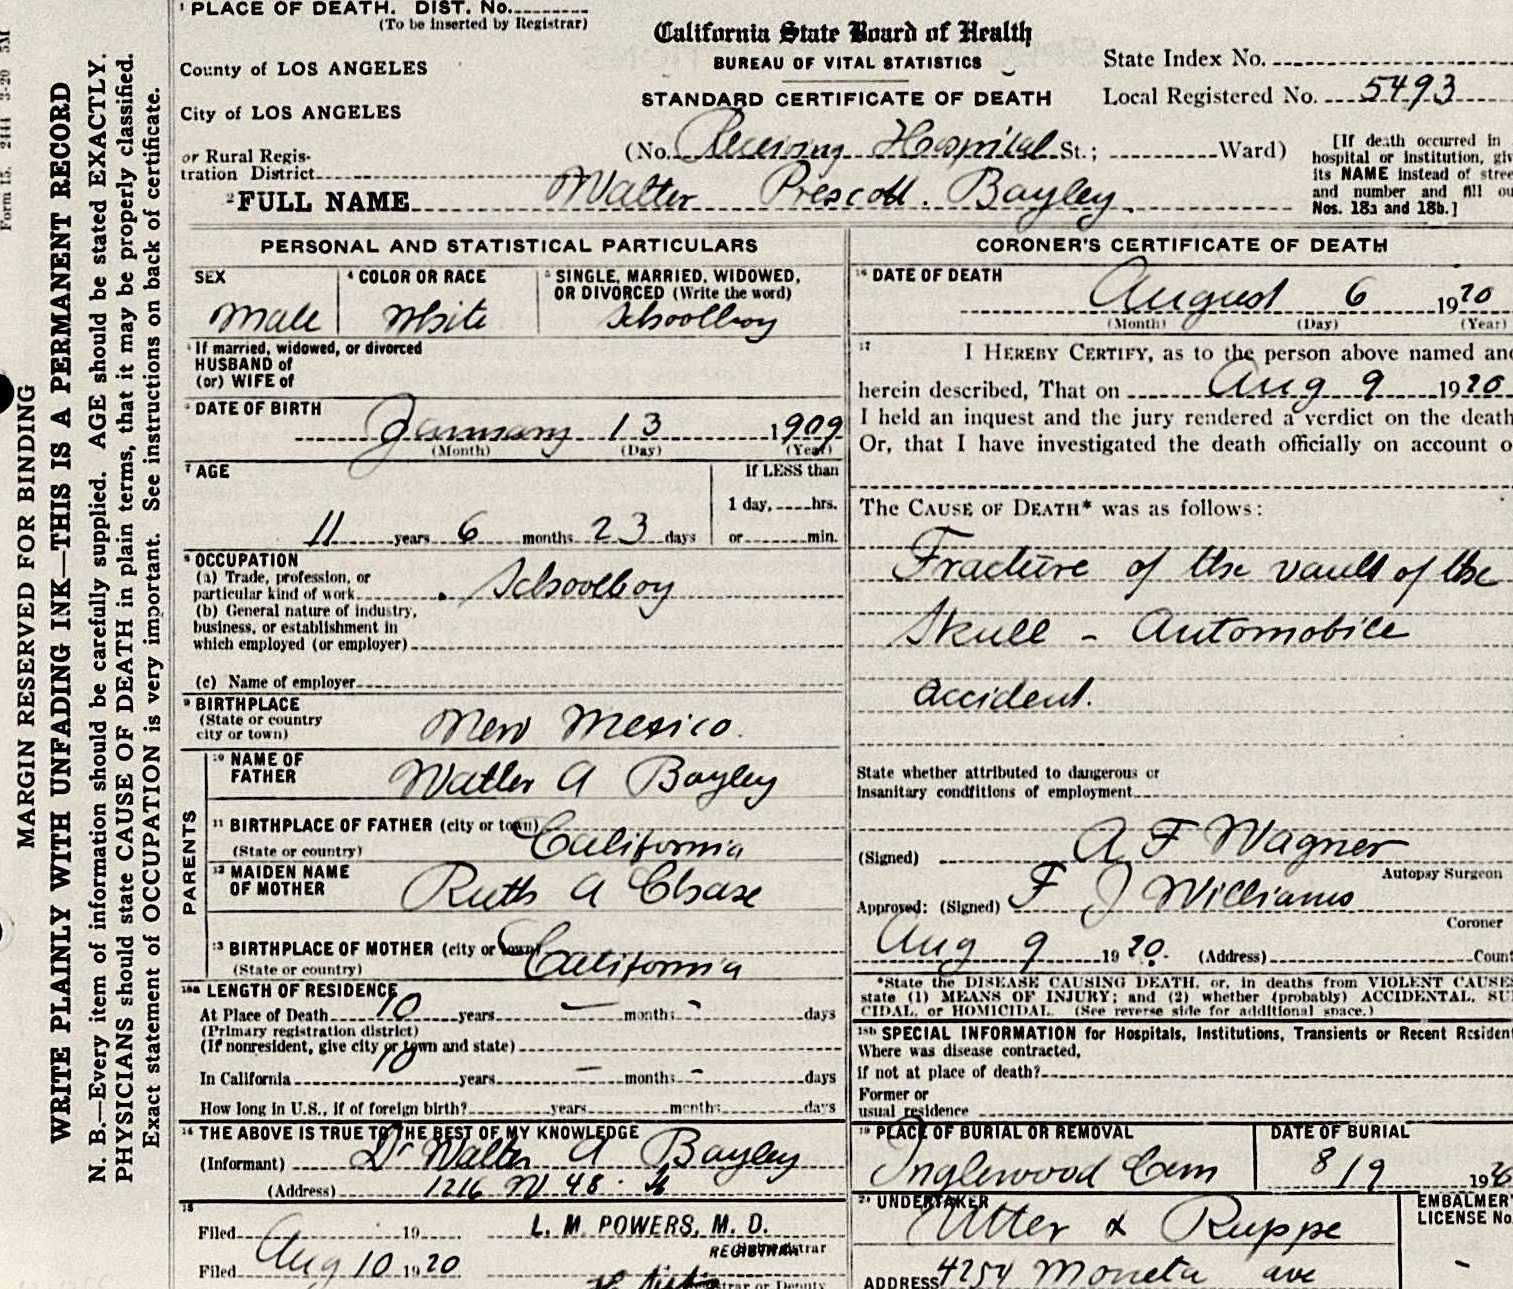 ¹ PLACE OF DEATH. DIST. No.
(To be inserted by Registrar)
California State Board of Health
BUREAU OF VITAL STATISTICS
STANDARD CERTIFICATE OF DEATH
State Index No.
Local Registered No. 5493
County of LOS ANGELES
City of LOS ANGELES
or Rural Regis-
tration District
(No. Receiving Hospital St.; Ward)
[If death occurred in
hospital or institution, giv
its NAME instead of stree
and number and fill ou
Nos. 18a and 18b.]
² FULL NAME Walter Prescott Bayley
PERSONAL AND STATISTICAL PARTICULARS
SEX
Male
⁴ COLOR OR RACE
White
⁵ SINGLE, MARRIED, WIDOWED,
OR DIVORCED (Write the word)
Schoolboy
If married, widowed, or divorced
HUSBAND of
(or) WIFE of
⁶ DATE OF BIRTH
January 13 1909
(Month) (Day) (Year)
⁷ AGE
11 years 6 months 23 days
If LESS than
1 day, hrs.
or min.
⁸ OCCUPATION
(a) Trade, profession, or
particular kind of work Schoolboy
(b) General nature of industry,
business, or establishment in
which employed (or employer)
(c) Name of employer
⁹ BIRTHPLACE
(State or country
city or town) New Mexico.
PARENTS
¹⁰ NAME OF
FATHER Walter A Bayley
¹¹ BIRTHPLACE OF FATHER (city or town)
(State or country) California
¹² MAIDEN NAME
OF MOTHER Ruth A Chase
¹³ BIRTHPLACE OF MOTHER (city or town)
(State or country) California
¹³ᵃ LENGTH OF RESIDENCE
At Place of Death 10 years – months - days
(Primary registration district)
(If nonresident, give city or town and state)
In California 10 years – months - days
How long in U.S., if of foreign birth? years months days
¹⁴ THE ABOVE IS TRUE TO THE BEST OF MY KNOWLEDGE
(Informant) Dr Walter A Bayley
(Address) 1216 W 48 St
¹⁵
Filed 19 L. M. POWERS, M. D.
REGISTRAR
Filed Aug 10 1920
trar or Deputy
CORONER'S CERTIFICATE OF DEATH
¹⁶ DATE OF DEATH
August 6 1920
(Month) (Day) (Year)
¹⁷ I HEREBY CERTIFY, as to the person above named and
herein described, That on Aug 9 1920
I held an inquest and the jury rendered a verdict on the death
Or, that I have investigated the death officially on account o
The CAUSE OF DEATH* was as follows:
Fracture of the vault of the
Skull - Automobile
accident.
State whether attributed to dangerous or
insanitary conditions of employment
(Signed) A F Wagner
Autopsy Surgeon
Approved: (Signed) F J Williams
Coroner
Aug 9 1920. (Address) Count
*State the DISEASE CAUSING DEATH, or, in deaths from VIOLENT CAUSES
state (1) MEANS OF INJURY; and (2) whether (probably) ACCIDENTAL, SUI
CIDAL, or HOMICIDAL. (See reverse side for additional space.)
¹⁸ᵇ SPECIAL INFORMATION for Hospitals, Institutions, Transients or Recent Resident
Where was disease contracted,
if not at place of death?
Former or
usual residence
¹⁹ PLACE OF BURIAL OR REMOVAL
Inglewood Cem
DATE OF BURIAL
8/9 192
²⁰ UNDERTAKER
Utter & Ruppe
ADDRESS 4254 Moneta ave
EMBALMER'
LICENSE No.
-
MARGIN RESERVED FOR BINDING
WRITE PLAINLY WITH UNFADING INK—THIS IS A PERMANENT RECORD
N. B.—Every item of information should be carefully supplied. AGE should be stated EXACTLY.
PHYSICIANS should state CAUSE OF DEATH in plain terms, that it may be properly classified.
Exact statement of OCCUPATION is very important. See instructions on back of certificate.
Form 15. 2444 3-20 5M